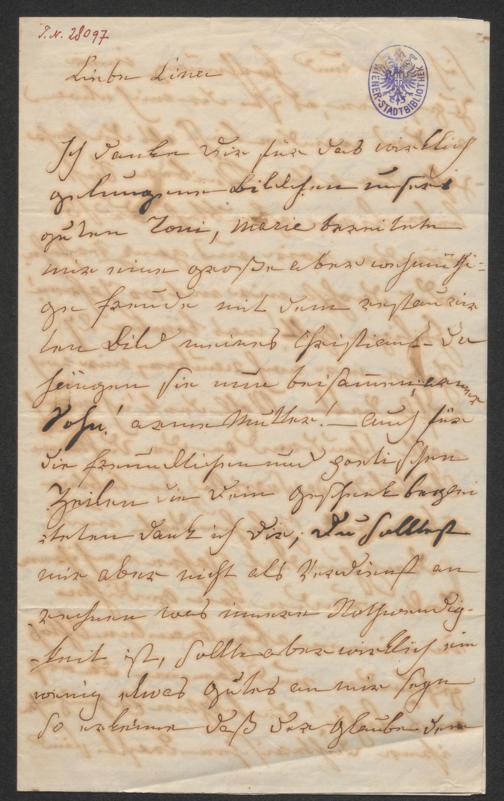 I.N. 28097
WIENER-STADTBIBLIOTHEK
Liebe Lina
Ich danke Dir für das wirklich
gelungene Bildchen unsers
guten Toni, Marie bereitete
mir eine große aber wehmüthi=
ge Freude mit dem restaurir
ten Bild meines Christians - Da
hängen sie nun beisammen, armer
Sohn! arme Mutter! - auch für
die freundlichen und poetischen
Zeilen die Dein Geschenk beglei
teten dank ich Dir, Du solltest
mir aber nicht als Verdienst an
rechnen was innere Nothwendig-
-keit ist, sollte aber wirklich ein
wenig etwas gutes an mir sein
so erkenne daß der Glaube dem